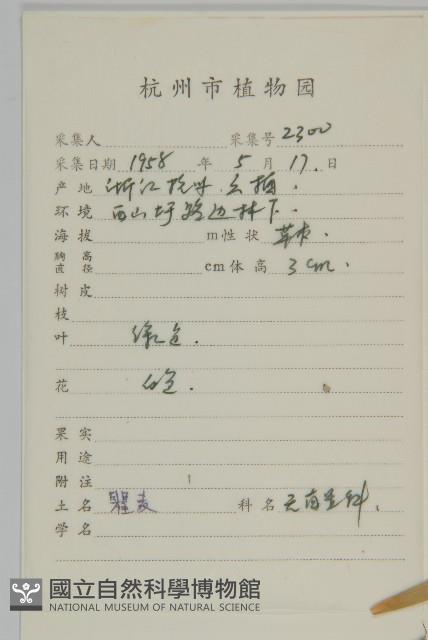 杭州市植物园
采集人 采集号 2300
采集日期 1958 年 5 月 17. 日
产地 浙江杭州.
环境 西山 路边林下.
海拔 m性状 草本.
胸高直径 cm体高 3cm.
树皮
枝
叶 绿色.
花 白色.
果实
用途
附注
土名 瞿麦 科名 天南星科.
学名
國立自然科學博物館
NATIONAL MUSEUM OF NATURAL SCIENCE